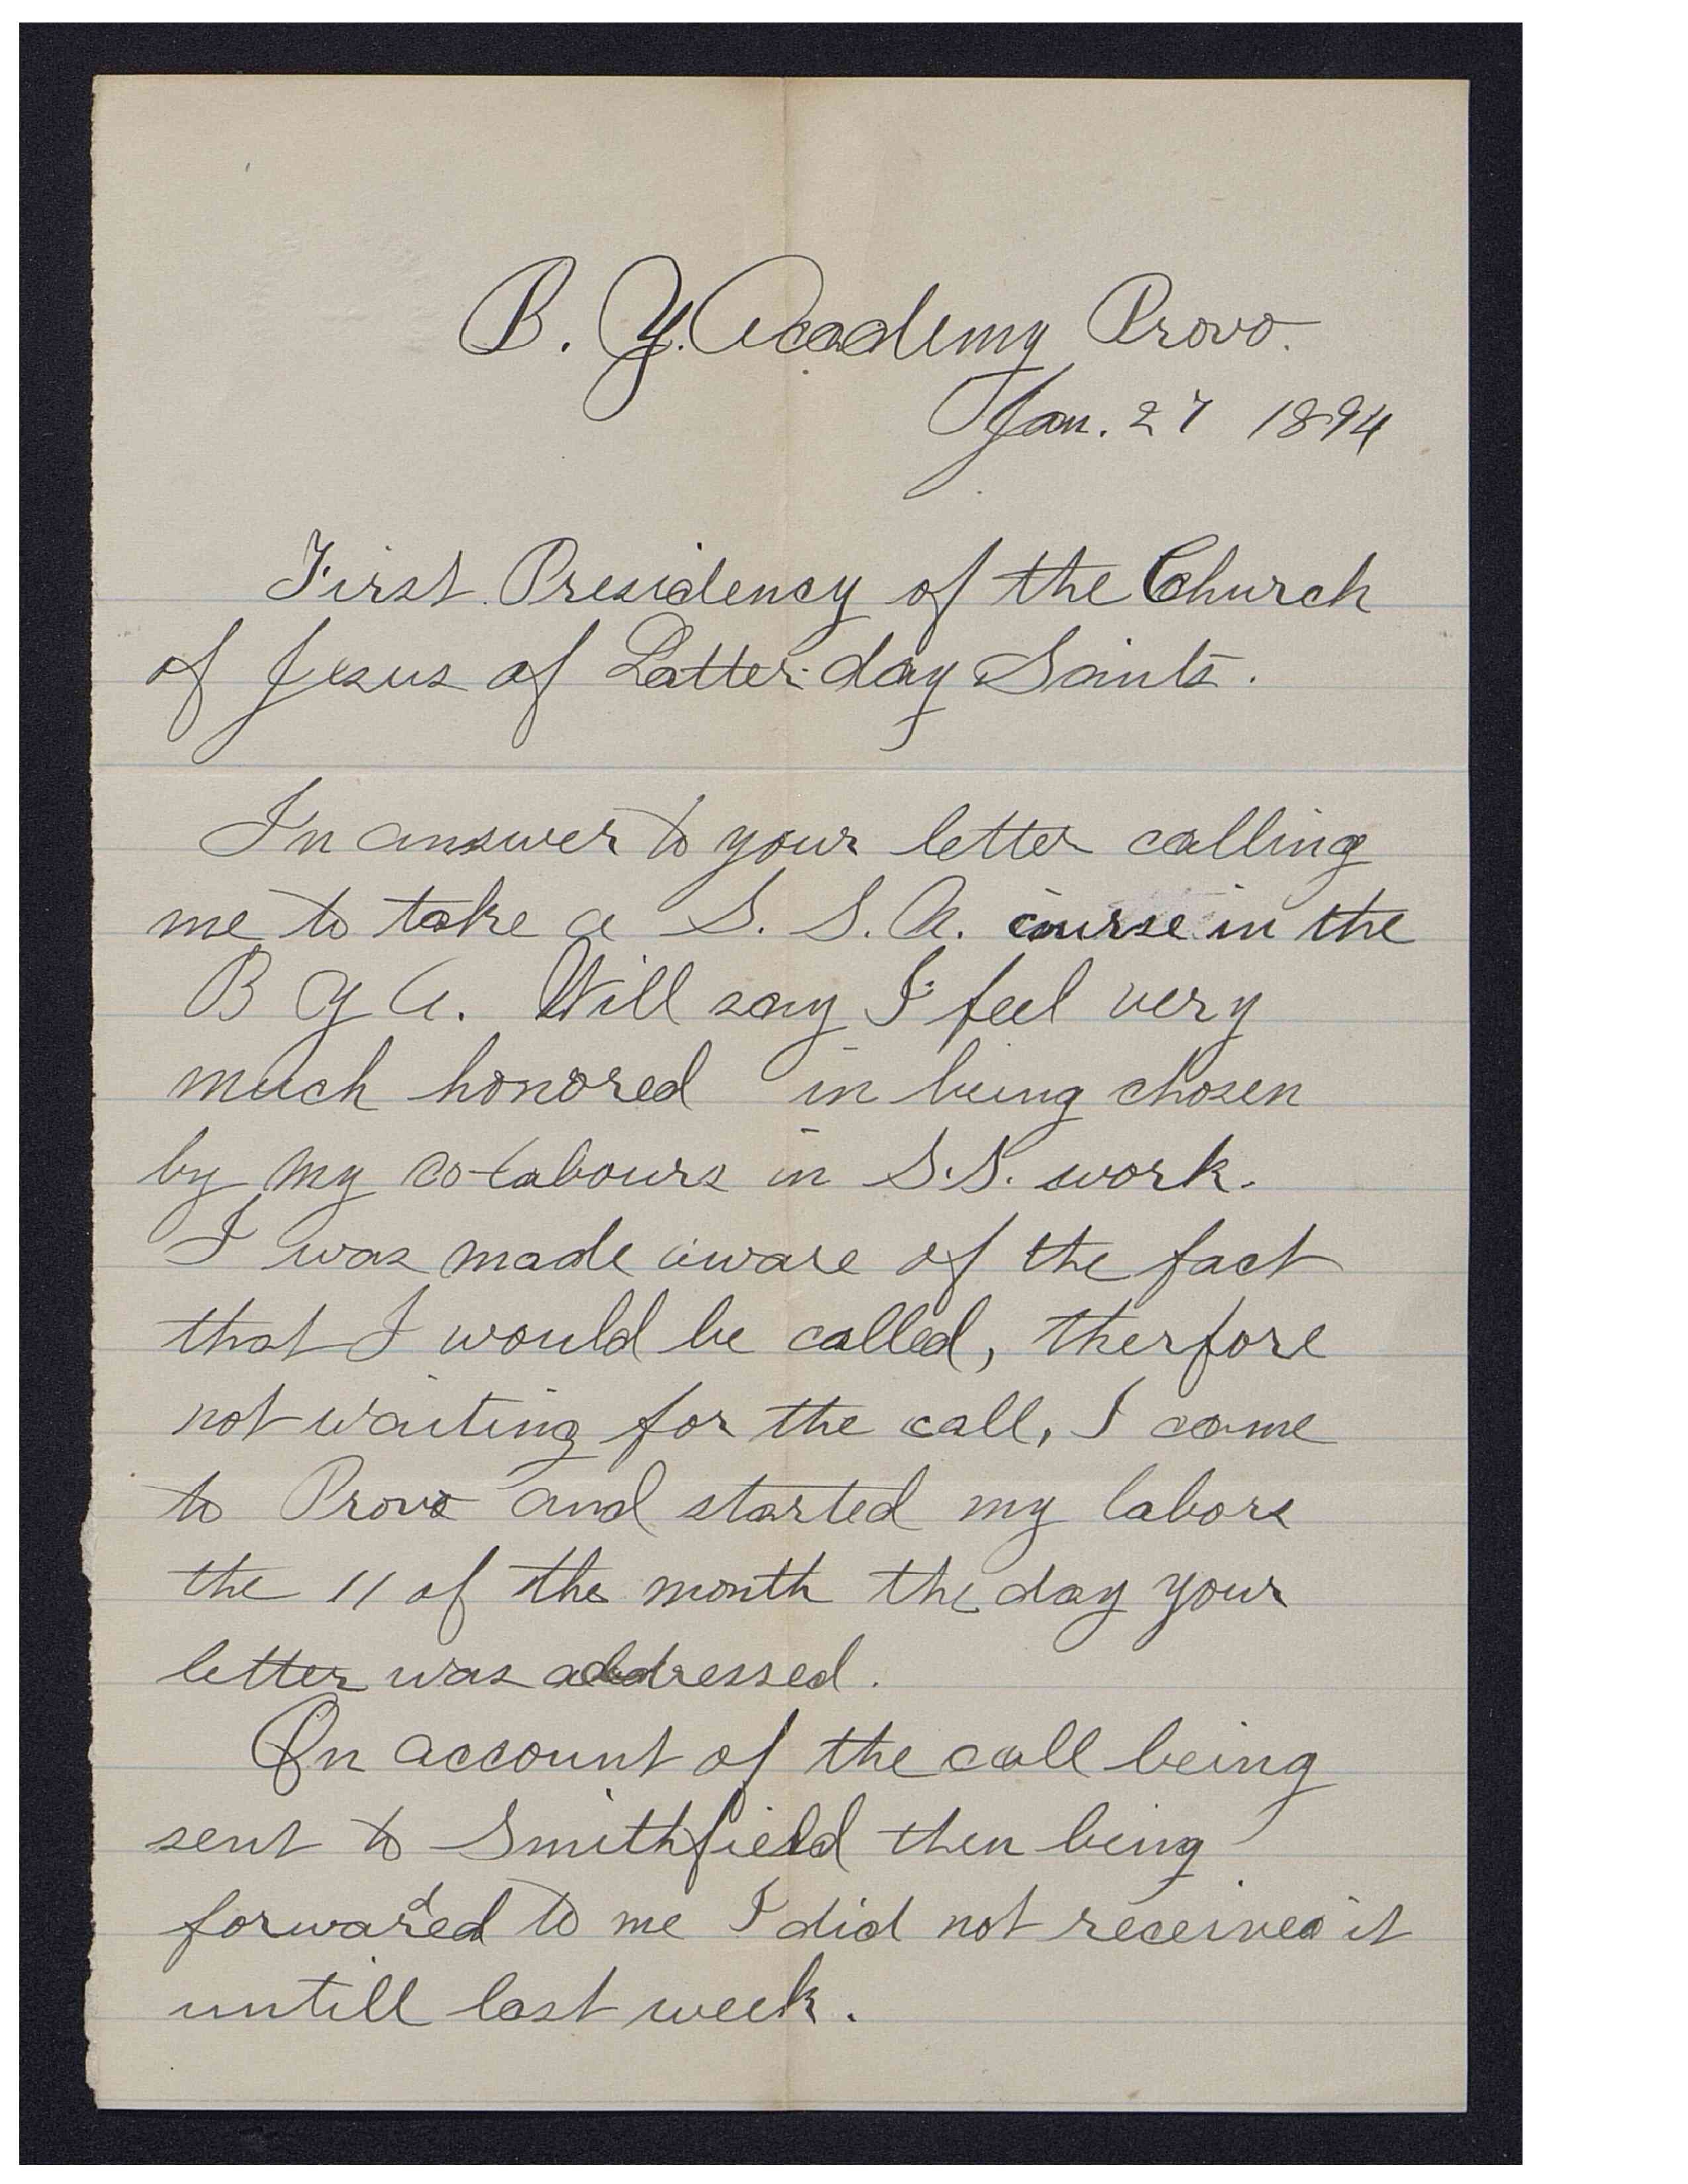 B. Y. Academy Provo.
Jan. 27 1894
First Presidency of the Church
of Jesus of Latter-day Saints.
In answer to your letter calling
me to take a S. S. A. course in the
B Y A. Will say I feel very
much honored in being chosen
by my co-labours in S.S. work.
I was made aware of the fact
that I would be called, therfore
not waiting for the call, I came
to Provo and started my labors
the 11 of the month the day your
letter was addressed.
On account of the call being
sent to Smithfield then being
forwarded to me I did not received it
untill last week.